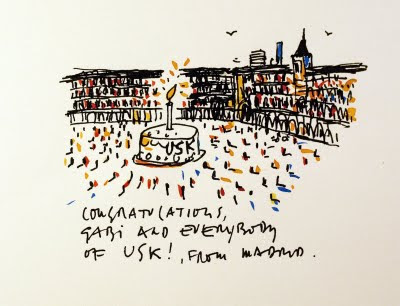 USK
CONGRATULATIONS,
GABI AND EVERYBODY
OF USK!, FROM MADRID.